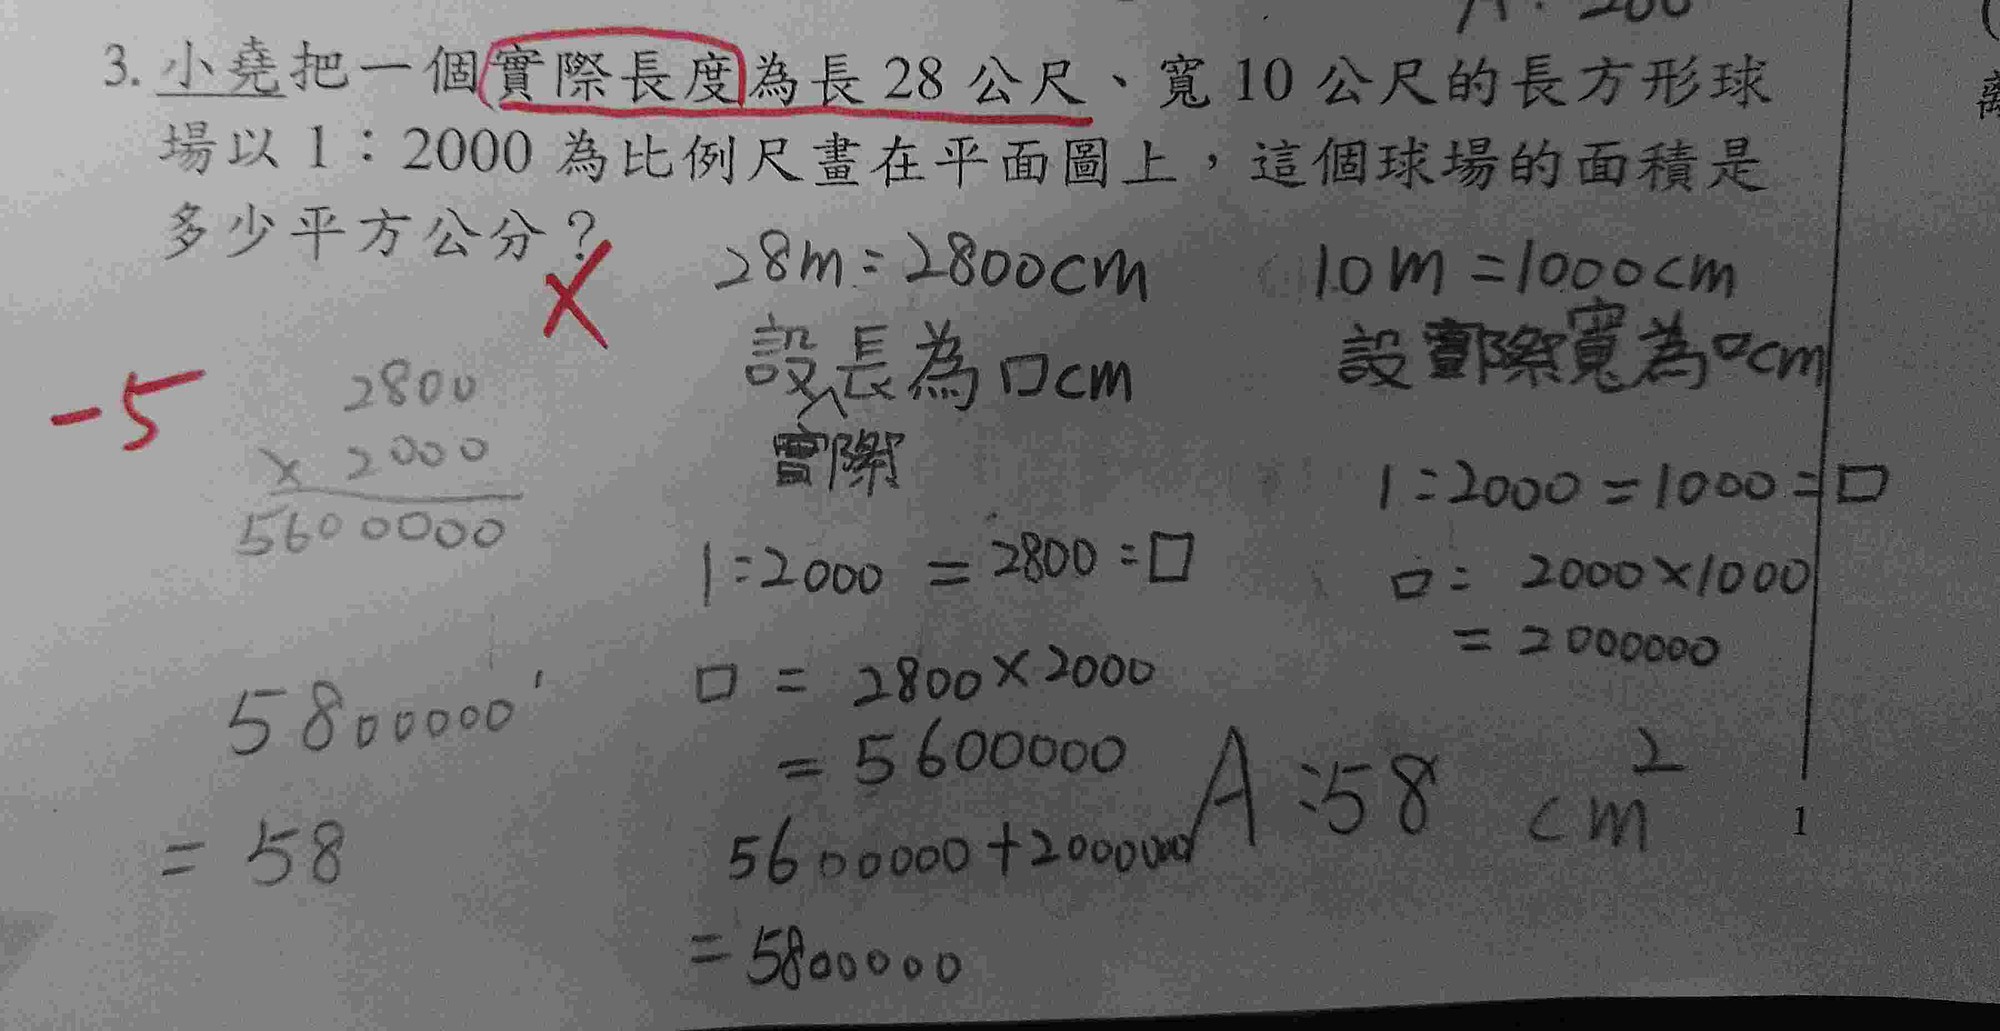 3. 小堯把一個實際長度為長 28 公尺、寬 10 公尺的長方形球
場以 1：2000 為比例尺畫在平面圖上，這個球場的面積是
多少平方公分？
-5
2800
× 2000
5600000
5800000
= 58
28m = 2800cm
設長為□cm
實際
1:2000 = 2800:□
□ = 2800×2000
= 5600000
5600000+2000000
= 5800000
10m = 1000cm
設實際寬為□cm
1:2000 = 1000:□
□ = 2000×1000
= 2000000
A:58 cm²
1